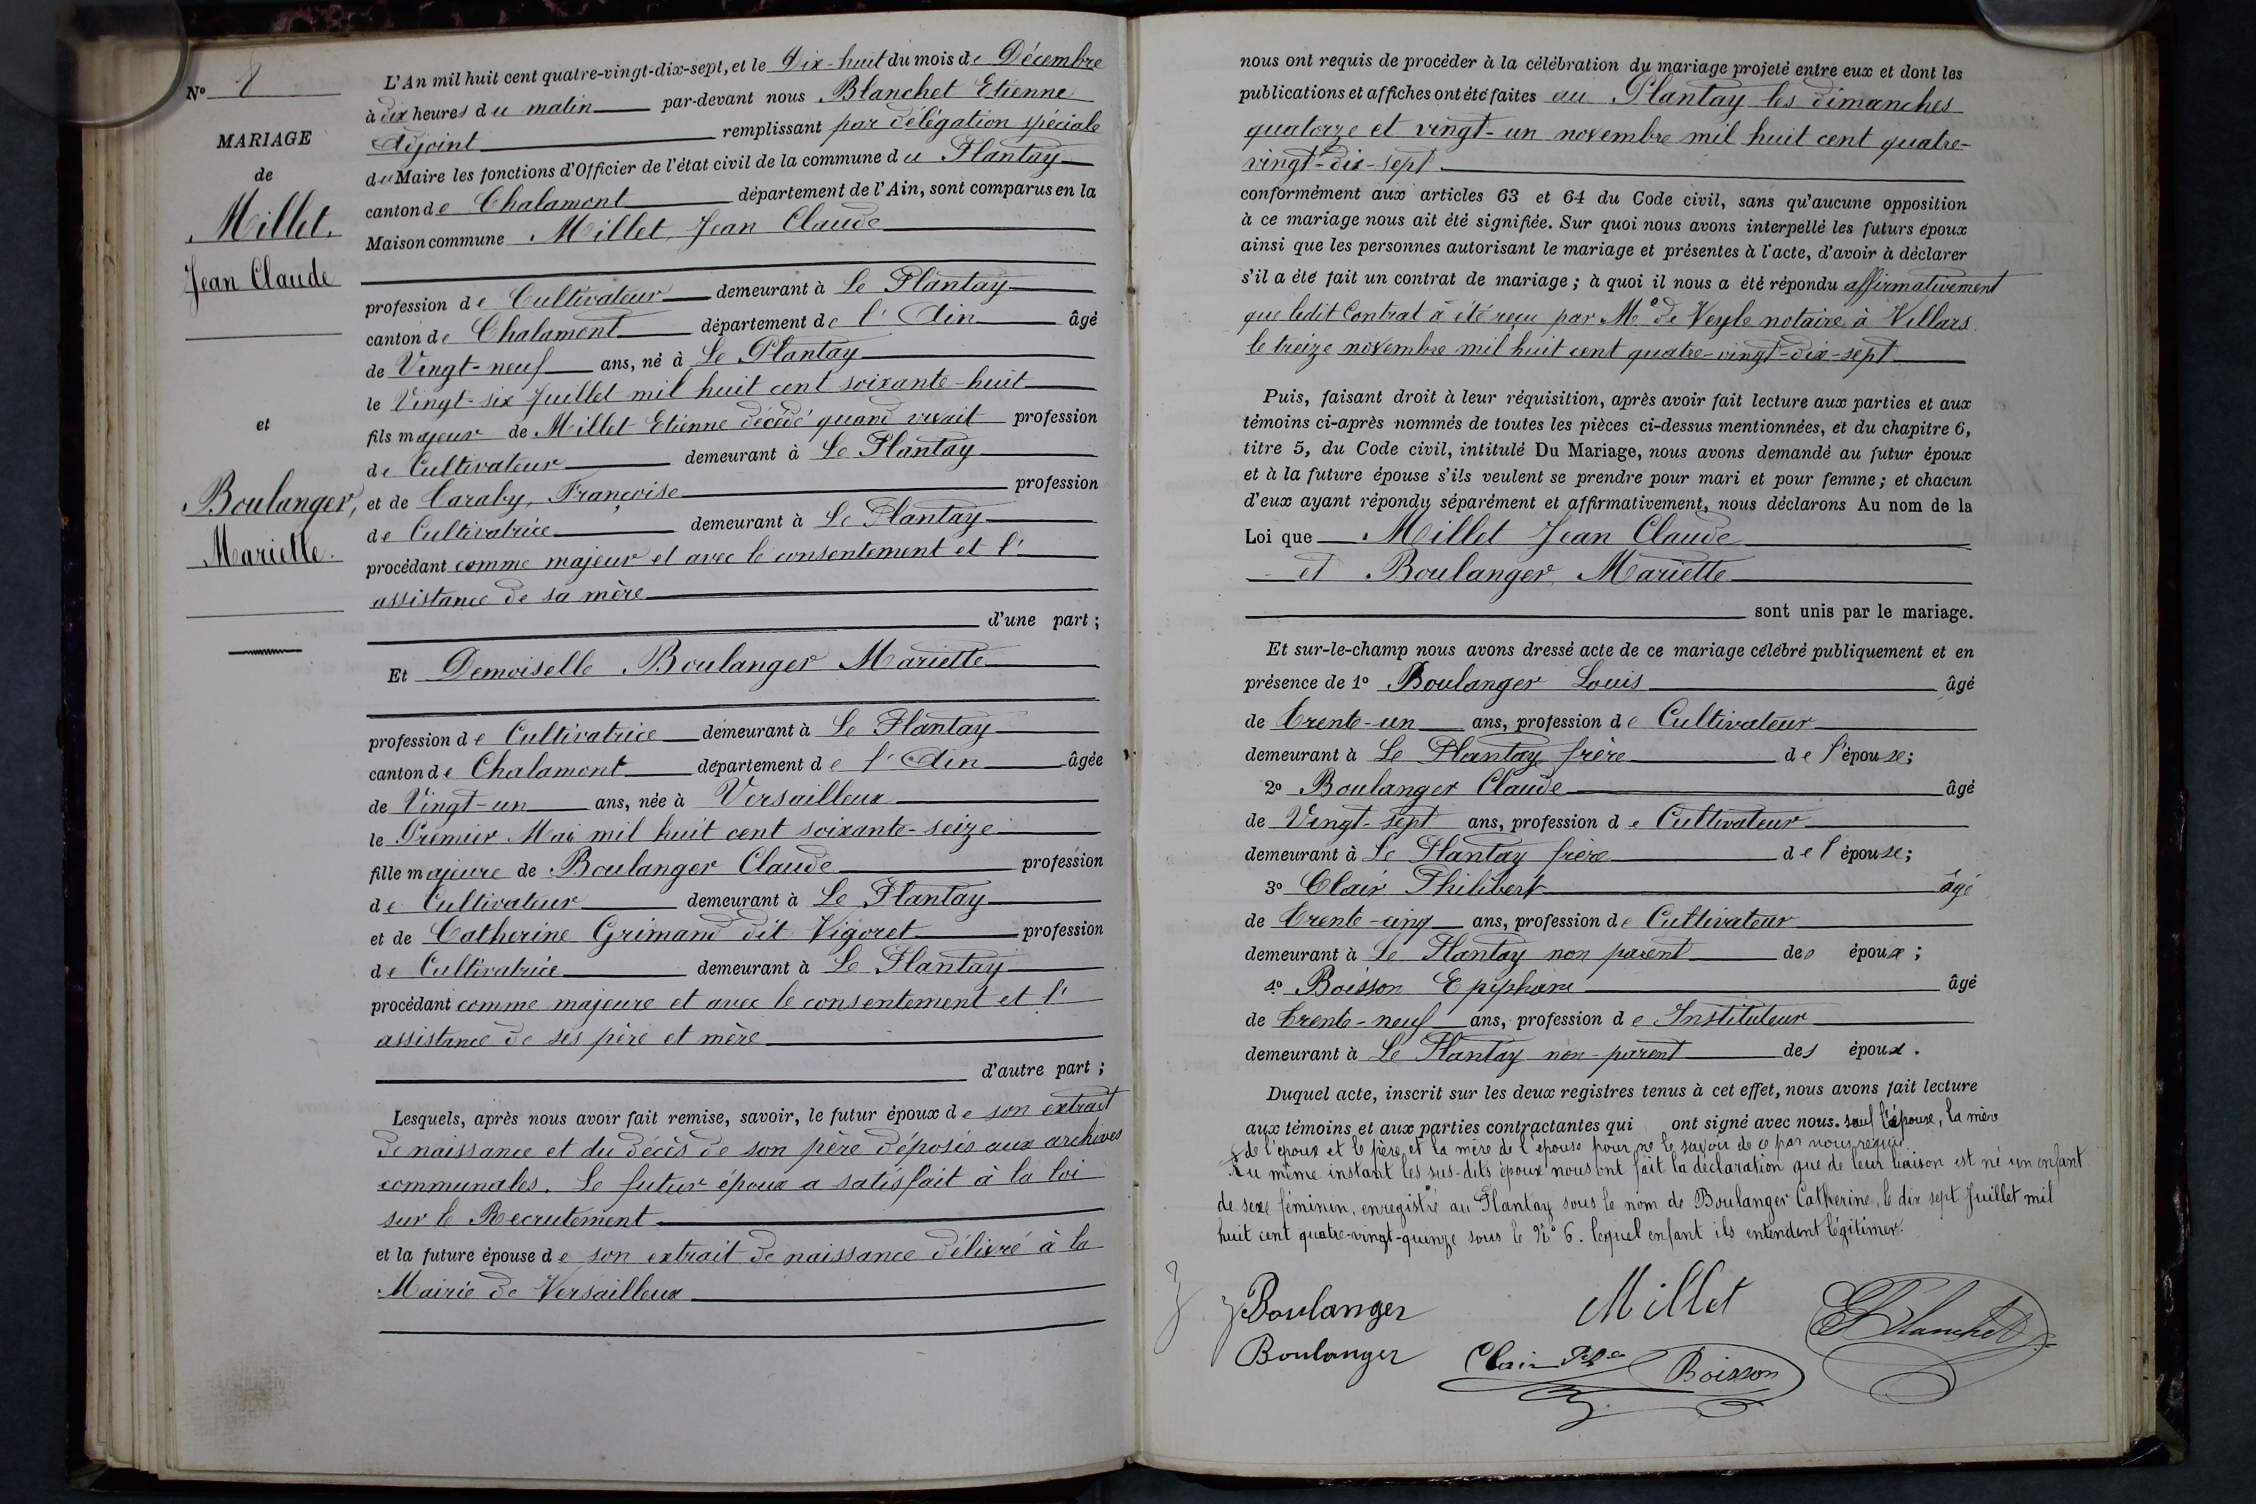 N° 8
MARIAGE
de
Millet,
Jean Claude
et
Boulanger,
Mariette.
L'An mil huit cent quatre-vingt-dix-sept, et le Dix-huit du mois de Décembre
à dix heures du matin par-devant nous Blanchet Etienne
Adjoint remplissant par délégation spéciale
du Maire les fonctions d'Officier de l'état civil de la commune du Plantay
canton de Chalamont département de l'Ain, sont comparus en la
Maison commune Millet, Jean Claude
profession de Cultivateur demeurant à Le Plantay
canton de Chalamont département de l'Ain âgé
de Vingt-neuf ans, né à Le Plantay
le Vingt-six Juillet mil huit cent soixante-huit
fils majeur de Millet Etienne décédé quand vivait profession
de Cultivateur demeurant à Le Plantay
et de Caraby, Françoise profession
de Cultivatrice demeurant à Le Plantay
procédant comme majeur et avec le consentement et l'
assistance de sa mère
d'une part ;
Et Demoiselle Boulanger Mariette
profession de Cultivatrice demeurant à Le Plantay
canton de Chalamont département de l'Ain âgée
de Vingt-un ans, née à Versailleux
le Premier Mai mil huit cent soixante-seize
fille majeure de Boulanger Claude profession
de Cultivateur demeurant à Le Plantay
et de Catherine Grimand dit Vigoret profession
de Cultivatrice demeurant à Le Plantay
procédant comme majeure et avec le consentement et l'
assistance de ses père et mère
d'autre part ;
Lesquels, après nous avoir fait remise, savoir, le futur époux de son extrait
de naissance et du décès de son père déposés aux archives
communales. Le futur époux a satisfait à la loi
sur le Recrutement
et la future épouse de son extrait de naissance délivré à la
Mairie de Versailleux
nous ont requis de procéder à la célébration du mariage projeté entre eux et dont les
publications et affiches ont été faites au Plantay les dimanches
quatorze et vingt-un novembre mil huit cent quatre-
vingt-dix-sept
conformément aux articles 63 et 64 du Code civil, sans qu'aucune opposition
à ce mariage nous ait été signifiée. Sur quoi nous avons interpellé les futurs époux
ainsi que les personnes autorisant le mariage et présentes à l'acte, d'avoir à déclarer
s'il a été fait un contrat de mariage ; à quoi il nous a été répondu affirmativement
que ledit Contrat à été reçu par Me de Veyle notaire à Villars
le treize novembre mil huit cent quatre-vingt-dix-sept
Puis, faisant droit à leur réquisition, après avoir fait lecture aux parties et aux
témoins ci-après nommés de toutes les pièces ci-dessus mentionnées, et du chapitre 6,
titre 5, du Code civil, intitulé Du Mariage, nous avons demandé au futur époux
et à la future épouse s'ils veulent se prendre pour mari et pour femme ; et chacun
d'eux ayant répondu séparément et affirmativement, nous déclarons Au nom de la
Loi que Millet Jean Claude
et Boulanger Mariette
sont unis par le mariage.
Et sur-le-champ nous avons dressé acte de ce mariage célébré publiquement et en
présence de 1° Boulanger Louis âgé
de trente-un ans, profession de Cultivateur
demeurant à Le Plantay frère de l'épouse ;
2° Boulanger Claude âgé
de Vingt-sept ans, profession de Cultivateur
demeurant à Le Plantay frère de l'épouse ;
3° Clair Philibert âgé
de trente-cinq ans, profession de Cultivateur
demeurant à Le Plantay non parent des époux ;
4° Boisson Epiphane âgé
de trente-neuf ans, profession de Instituteur
demeurant à Le Plantay non-parent des époux.
Duquel acte, inscrit sur les deux registres tenus à cet effet, nous avons fait lecture
aux témoins et aux parties contractantes qui ont signé avec nous. sauf l'épouse, la mère
de l'époux et le père et la mère de l'épouse pour ne le savoir de ce par nous requis
Au même instant les sus-dits époux nous ont fait la déclaration que de leur liaison est né un enfant
de sexe féminin, enregistré au Plantay sous le nom de Boulanger Catherine, le dix sept Juillet mil
huit cent quatre-vingt-quinze sous le N° 6. lequel enfant ils entendent légitimer.
Boulanger Millet E Blanchet
Boulanger Clair Boisson